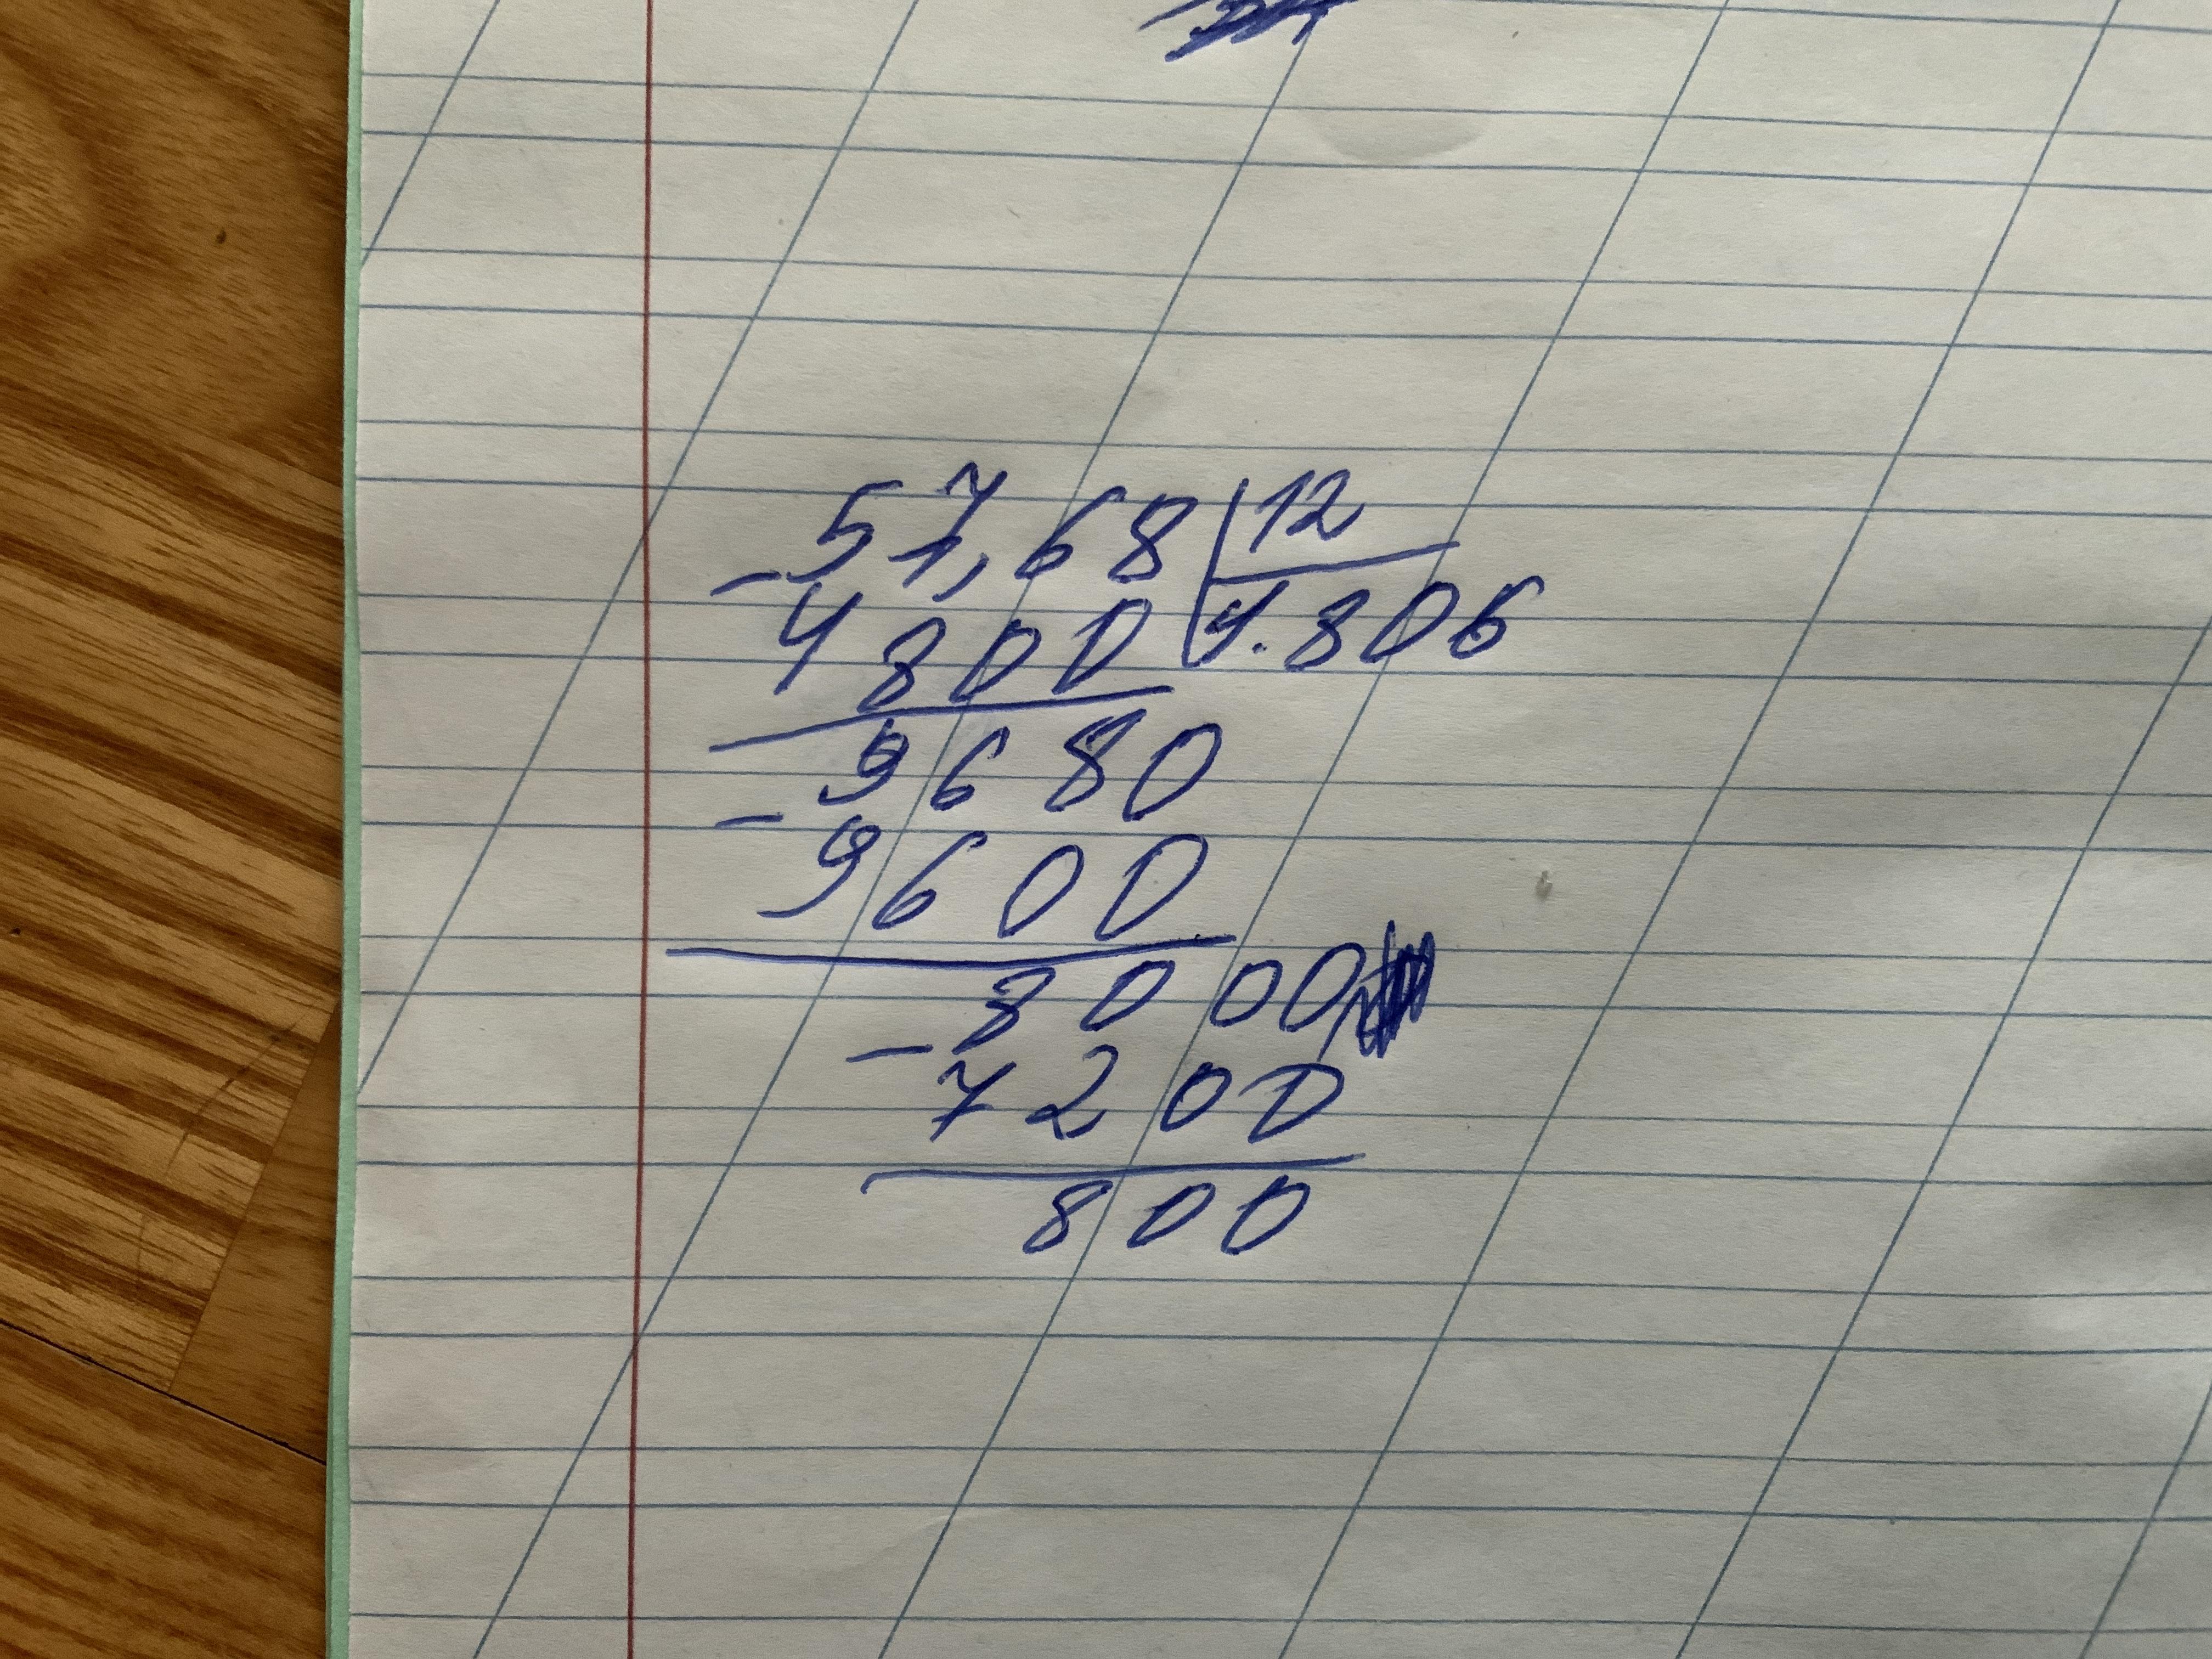 57,68 12
- 4800 4.806
9680
- 9600
8000
- 7200
800